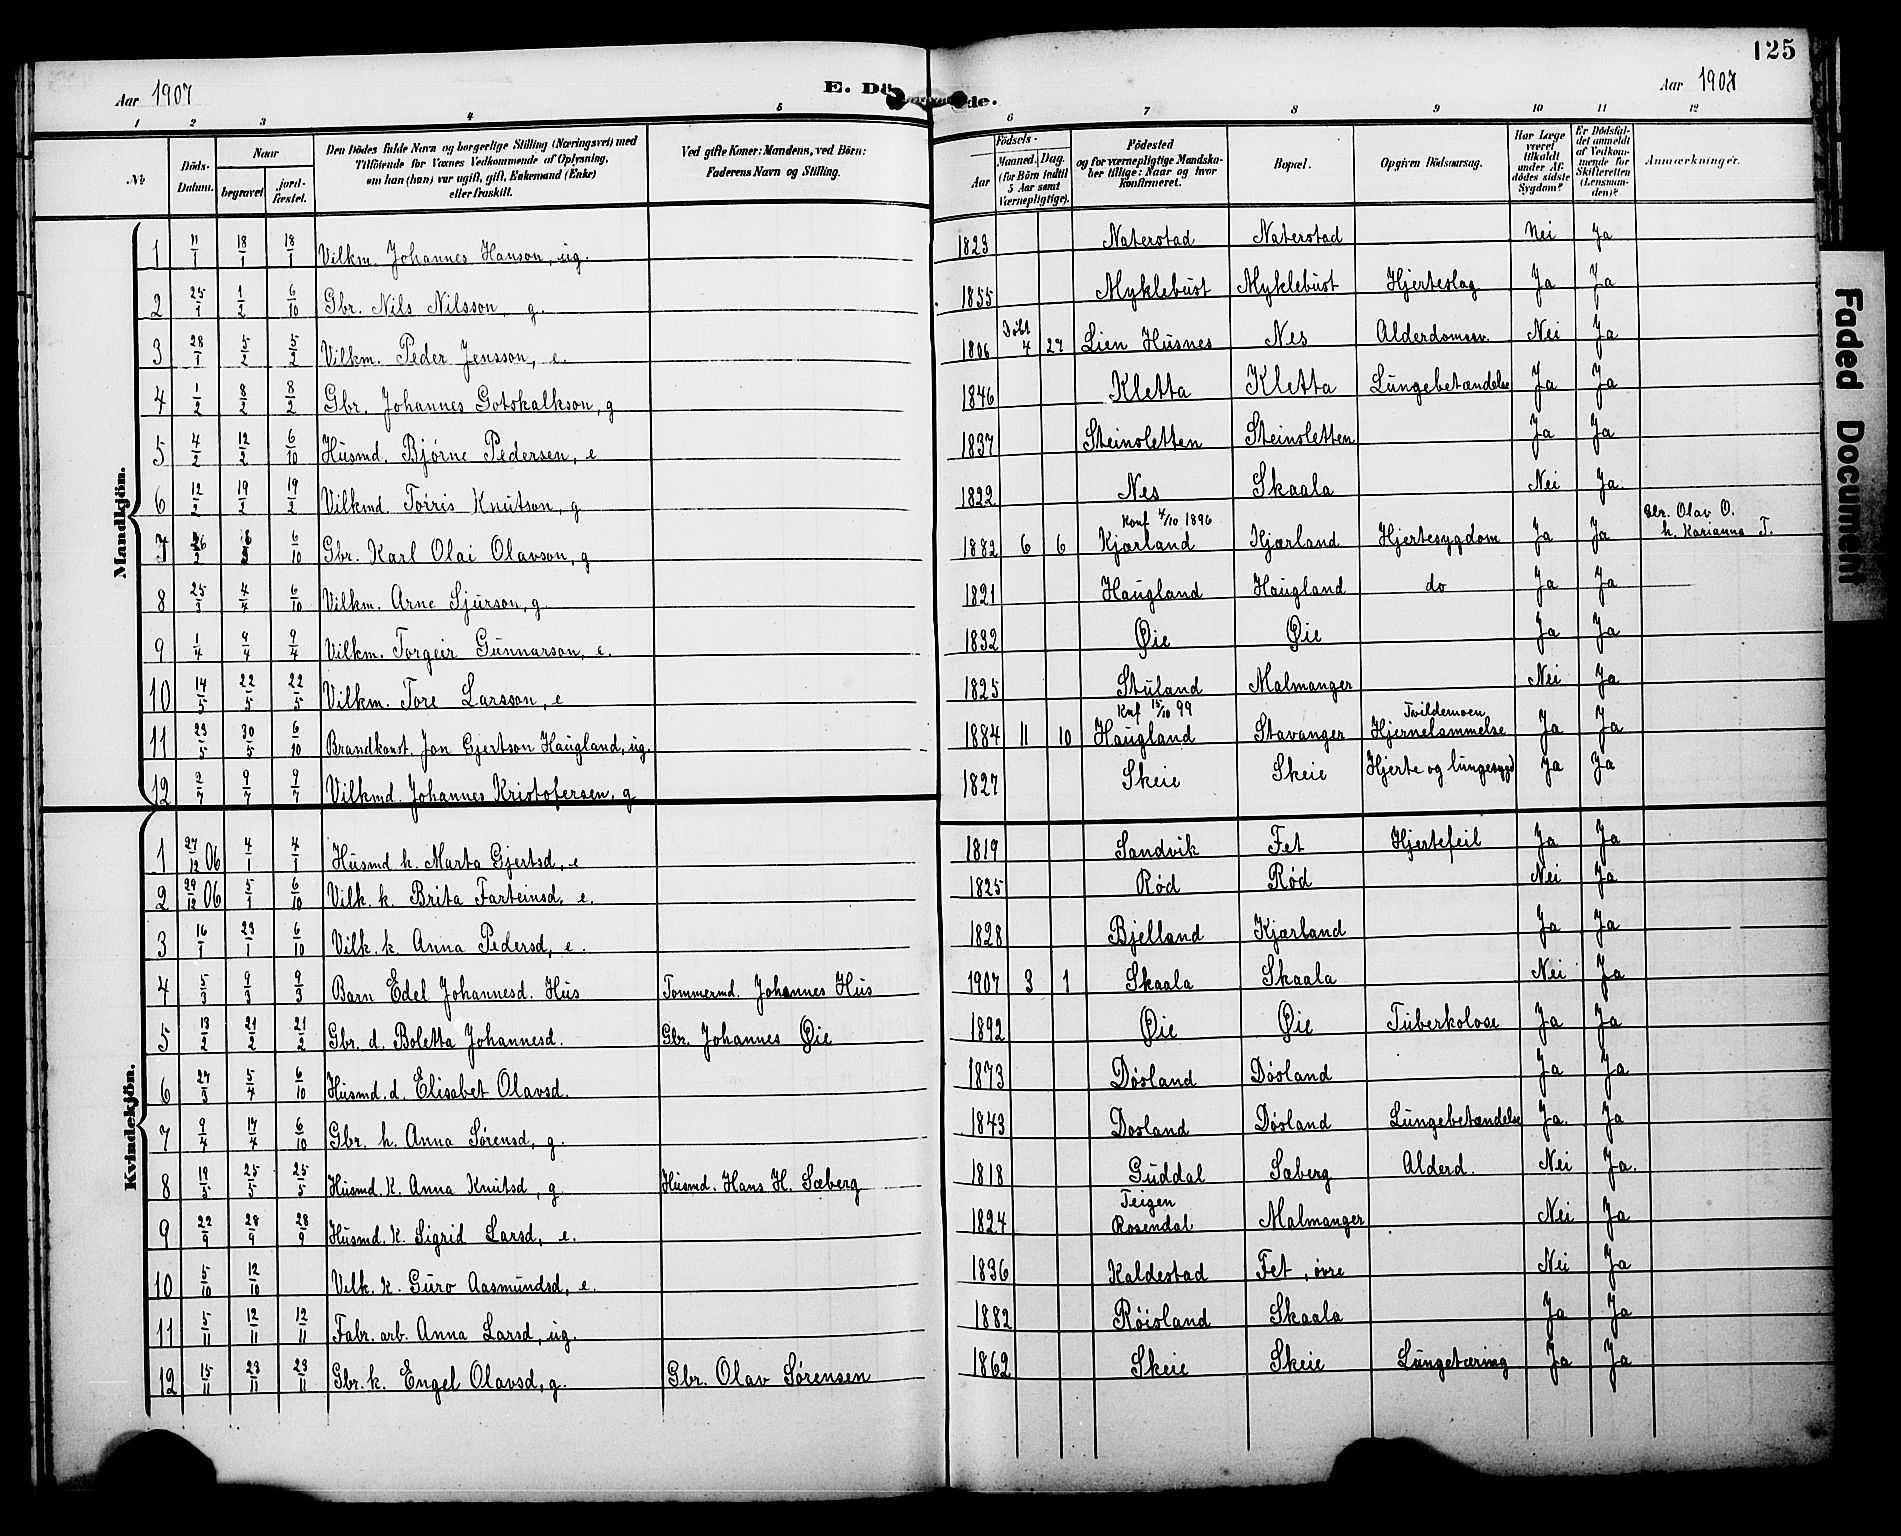 125
Aar 1907
E. Dö
de.
Aar 1907
1 2 3 4 5 6 7 8 9 10 11 12
№
Döds-
Datum.
Naar
begravet
jord-
fæstet.
Den Dödes fulde Navn og borgerlige Stilling (Næringsvei) med
Tilföiende for Voxnes Vedkommende af Oplysning,
om han (hun) var ugift, gift, Enkemand (Enke)
eller fraskilt.
Ved gifte Koner: Mandens, ved Börn:
Faderens Navn og Stilling.
Födsels-
Aar
Maaned. Dag.
(for Börn indtil
5 Aar samt
Værnepligtige).
Födested
og for værnepligtige Mandska-
ber tillige: Naar og hvor
konfirmeret.
Bopæl.
Opgiven Dödsaarsag.
Har Læge
været
tilkaldt
under Af-
dödes sidste
Sygdom?
Er Dödsfal-
det anmeldt
af Vedkom-
mende for
Skifteretten
(Lensman-
den)?
Anmærkninger.
Mandkjön.
1 11/1 18/1 18/1 Vilkm. Johannes Hanson, ug. 1823 Naterstad Naterstad Nei Ja
2 25/1 1/2 6/10 Gbr. Nils Nilsson, g. 1855 Myklebust Myklebust Hjerteslag Ja Ja
3 28/1 5/2 5/2 Vilkm. Peder Jensson, e. 1806 Døbt 4 27 Lien Husnes Nes Alderdomssv. Nei Ja
4 1/2 8/2 8/2 Gbr. Johannes Gotskalkson, g 1846 Kletta Kletta Lungebetændelse Ja Ja
5 4/2 12/2 6/10 Husmd. Bjørne Pedersen, e 1837 Steinsletten Steinsletten Ja Ja
6 12/2 19/2 19/2 Vilkmd. Torris Knutson, g 1822 Nes Skaala Nei Ja.
Konf 4/10 1896
Gbr. Olav O.
7 26/2 6/10 Gbr. Karl Olai Olavson, g 1882 6 6 Kjærland Kjærland Hjertesygdom Ja Ja h. Karianna T.
8 25/3 4/4 6/10 Vilkm. Arne Sjurson, g 1821 Haugland Haugland do Ja Ja
9 1/4 9/4 9/4 Vilkm. Torgeir Gunnarson, e. 1832 Øie Øie Ja Ja
10 14/5 22/5 22/5 Vilkm. Tore Larsson, e 1825 Stuland Malmanger Nei Ja
Konf 15/10 99
Tvildemoen
11 23/5 30/5 6/10 Brandkonst. Jon Gjertson Haugland, ug. 1884 11 10 Haugland Stavanger Hjernelammelse Ja Ja
12 2/7 9/7 9/7 Vilkmd. Johannes Kristofersen, g 1827 Skeie Skeie Hjerte og lungesygd Ja Ja
Kvindekjön.
1 27/12 06 4/1 4/1 Husmd k. Marta Gjertsd, e 1819 Sandvik Fet Hjertefeil Ja Ja
2 29/12 06 5/1 6/10 Vilk. k. Brita Farteinsd, e. 1825 Rød Rød Nei Ja
3 16/1 23/1 6/10 Vilk. k. Anna Pedersd, e. 1828 Bjelland Kjærland Ja Ja
4 5/3 9/3 9/3 Barn Edel Johannesd. Hus Tommermd. Johannes Hus 1907 3 1 Skaala Skaala Nei Ja
5 13/2 21/2 21/2 Gbr. d. Boletta Johannesd. Gbr. Johannes Øie 1892 Øie Øie Tuberkolose Ja Ja
6 27/3 5/4 6/10 Husmd. d. Elisabet Olavsd. 1873 Døsland Døsland Ja Ja
7 9/4 17/4 6/10 Gbr. h. Anna Sørensd, g. 1843 Dosland Døsland Lungebetændelse Ja. Ja
8 19/5 25/5 25/5 Husmd. k. Anna Knutsd, g Husmd. Hans H. Sæberg 1818 Guddal Sæberg Alderd. Nei Ja.
9 22/9 28/9 28/9 Husmd. k. Sigrid Larsd, e. 1824 Teigen Rosendal Malmanger Nei Ja
10 5/10 12/10 Vilk. k. Guro Aasmundsd, e. 1836 Kaldestad Fet, øvre Nei Ja
11 5/11 12/11 12/11 Fabr. arb. Anna Larsd, ug. 1882 Røisland Skaala Ja Ja
12 15/11 23/11 23/11 Gbr. k. Engel Olavsd, g. Gbr. Olav Sørensen 1862 Skeie Skeie Lungetæring Ja Ja
Faded Document